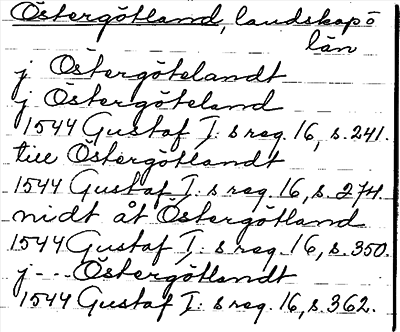 Östergötland, landskap ö
län
j Östergötelandt
j Östergöteland
1544 Gustaf I: s reg. 16, s. 241.
till Östergötlandt
1544 Gustaf I: s reg. 16, s. 274.
nidt åt Östergötland
1544 Gustaf I: s reg. 16, s. 350.
j - - Östergötlandt
1544 Gustaf I: s reg. 16, s. 362.